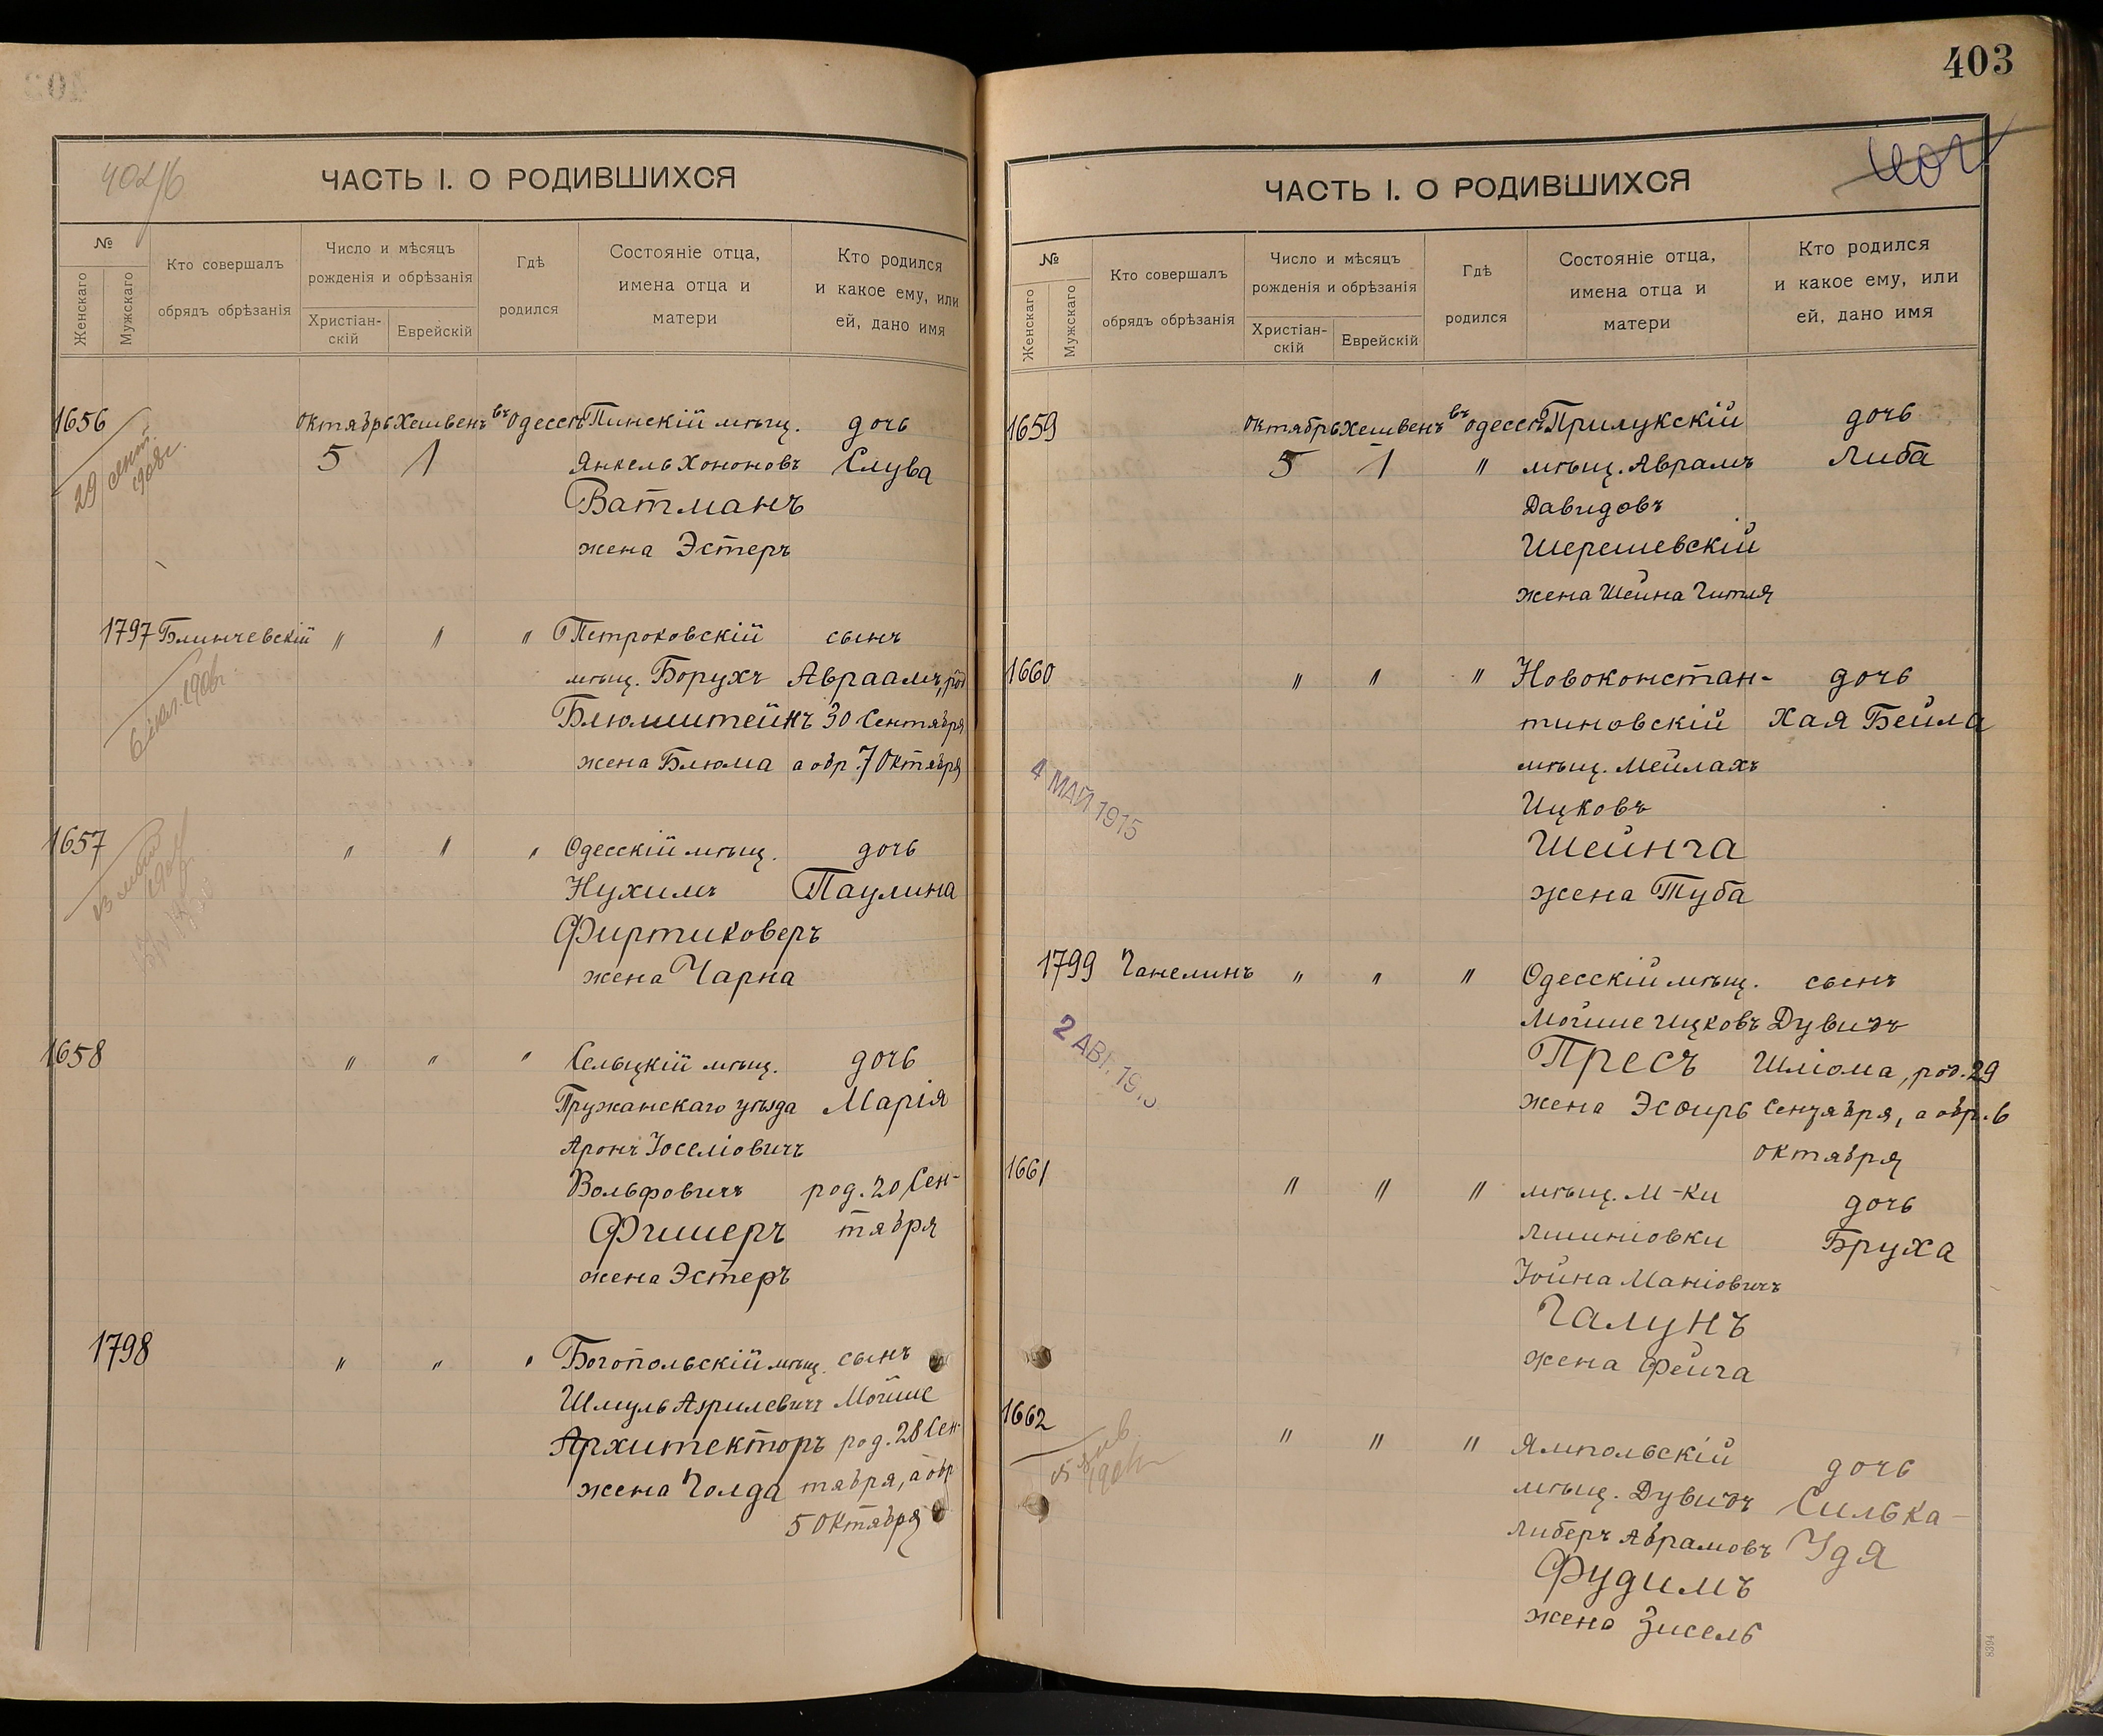 403
ЧАСТЬ I. О РОДИВШИХСЯ
№
Женскаго
Мужскаго
Кто совершалъ
обрядъ обрѣзанія
Число и мѣсяцъ
рожденія и обрѣзанія
Христіан-
скій
Еврейскій
Гдѣ
родился
Состояніе отца,
имена отца и
матери
Кто родился
и какое ему, или
ей, дано имя
1656 Октябрь Хешвенъ въ Одессѣ Пинскій мѣщ. дочь
29 сент. 5 1 Янкель Хононовъ Слува
1908 г. Ватманъ
жена Эстеръ
1797 Блинчевскій " " " Петроковскій сынъ
мѣщ. Борухъ Авраамъ, род
Блюмштейнъ 30 Сентября
жена Блюма а обр. 7 Октября
1657 " " " Одесскій мѣщ. дочь
Нухимъ Паулина
Фиртиковеръ
жена Чарна
1658 " " " Сельцкій мѣщ. дочь
Пружанскаго уѣзда Марія
Аронъ Іоселіовичъ
Вольфовичъ род. 20 Сен-
Фишеръ тября
жена Эстеръ
1798 " " " Богопольскій мѣщ. сынъ
Шмуль Азрилевичъ Мойше
Архитекторъ род. 28 Сен-
жена Голда тября, а обр
5 Октября
403
ЧАСТЬ I. О РОДИВШИХСЯ
№
Женскаго
Мужскаго
Кто совершалъ
обрядъ обрѣзанія
Число и мѣсяцъ
рожденія и обрѣзанія
Христіан-
скій
Еврейскій
Гдѣ
родился
Состояніе отца,
имена отца и
матери
Кто родился
и какое ему, или
ей, дано имя
1659 Октябрь Хешвенъ въ Одессѣ Прилукскій дочь
5 1 " мѣщ. Аврамъ Либа
Давидовъ
Шерешевскій
жена Шейна Гитля
1660 " " " Новоконстан- дочь
тиновскій Хая Бейла
4 МАЙ 1915 мѣщ. Мейлахъ
Ицковъ
Шейнга
жена Туба
1799 Ганелинъ " " " Одесскій мѣщ. сынъ
Мойше Ицковъ Дувидъ
2 АВГ. 191 Пресъ Шліома, род. 29
жена Эсѳирь Сентября, а обр. 6
октября
1661 " " " мѣщ. М-ки дочь
Бруха
Іойна Маніовичъ
Галунъ
жена Фейга
1662 " " " Ямпольскій дочь
мѣщ. Дувидъ Силька-
Либеръ Аврамовъ Удя
Фудимъ
жена Зисель
8394